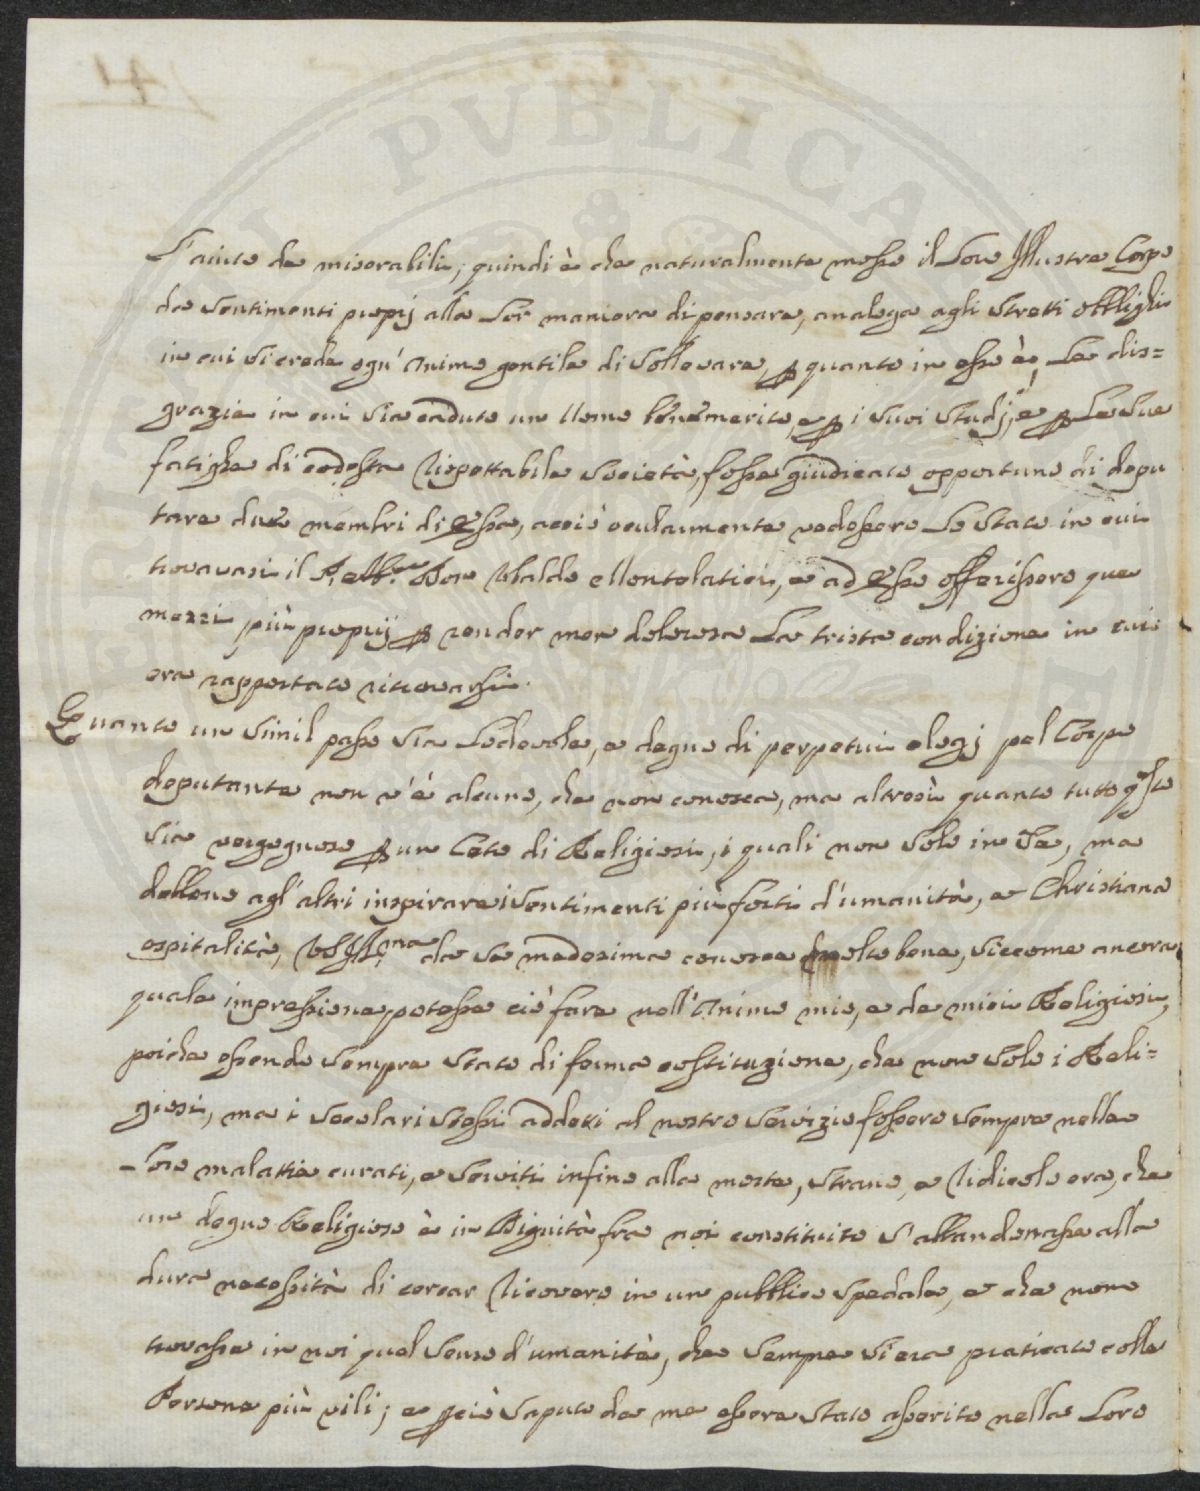 PVBLICA
L'aiuto de miserabili; quindi è che naturalmente mosso il Loro Illustre Corpo
da sentimenti proprj alla Lor maniera di pensare, analoga agli stretti obblighi
in cui si crede ogn' Anima gentile di sollevare, p quanto in esso è, le dis=
grazie in cui sia caduto un Uomo benemerito, e p i suoi studj, e p le sue
fatighe di codesta Rispettabile Società, fosse giudicato opportuno di depu
tare due membri di Essa, acciò oculaumente vedessero lo stato in cui
trovavasi il P. Abb.e Don Ubaldo Montelatici, e ad Esso offerissero que
mezzi più proprij p render men dolorosa la trista condizione in cui
era rapportato ritrovarsi.
Quanto un simil passo sia lodevole, e degno di perpetui elogj pel Corpo
deputante non v'è alcuno, che non conosca, ma altresì quanto tutto qsto
sia vergognoso p un Ceto di Religiosi, i quali non solo in se, ma
debbono agl' altri inspirare i sentimenti più forti d'umanità, e Christiana
ospitalità, VSIll.ma da se medesima conosce molto bene, siccome ancora
quale impressione potesse ciò fare nell' Animo mio, e de miei Religiosi,
poiche essendo sempre stato di ferma costituzione, che non solo i Reli=
giosi, ma i secolari stessi addetti al nostro servizio fossero sempre nelle
Loro malattie curati, e serviti infino alla morte, strano, e ridicolo era, che
un degno Religioso è in Dignità fra noi constituito s'abbandonasse alla
dura necessità di cercar ricovero in un pubblico spedale, e che non
trovasse in noi quel senso d'umanità, che sempre si era praticato colle
Persone più vili; e pciò saputo da me essere stato asserito nella Loro